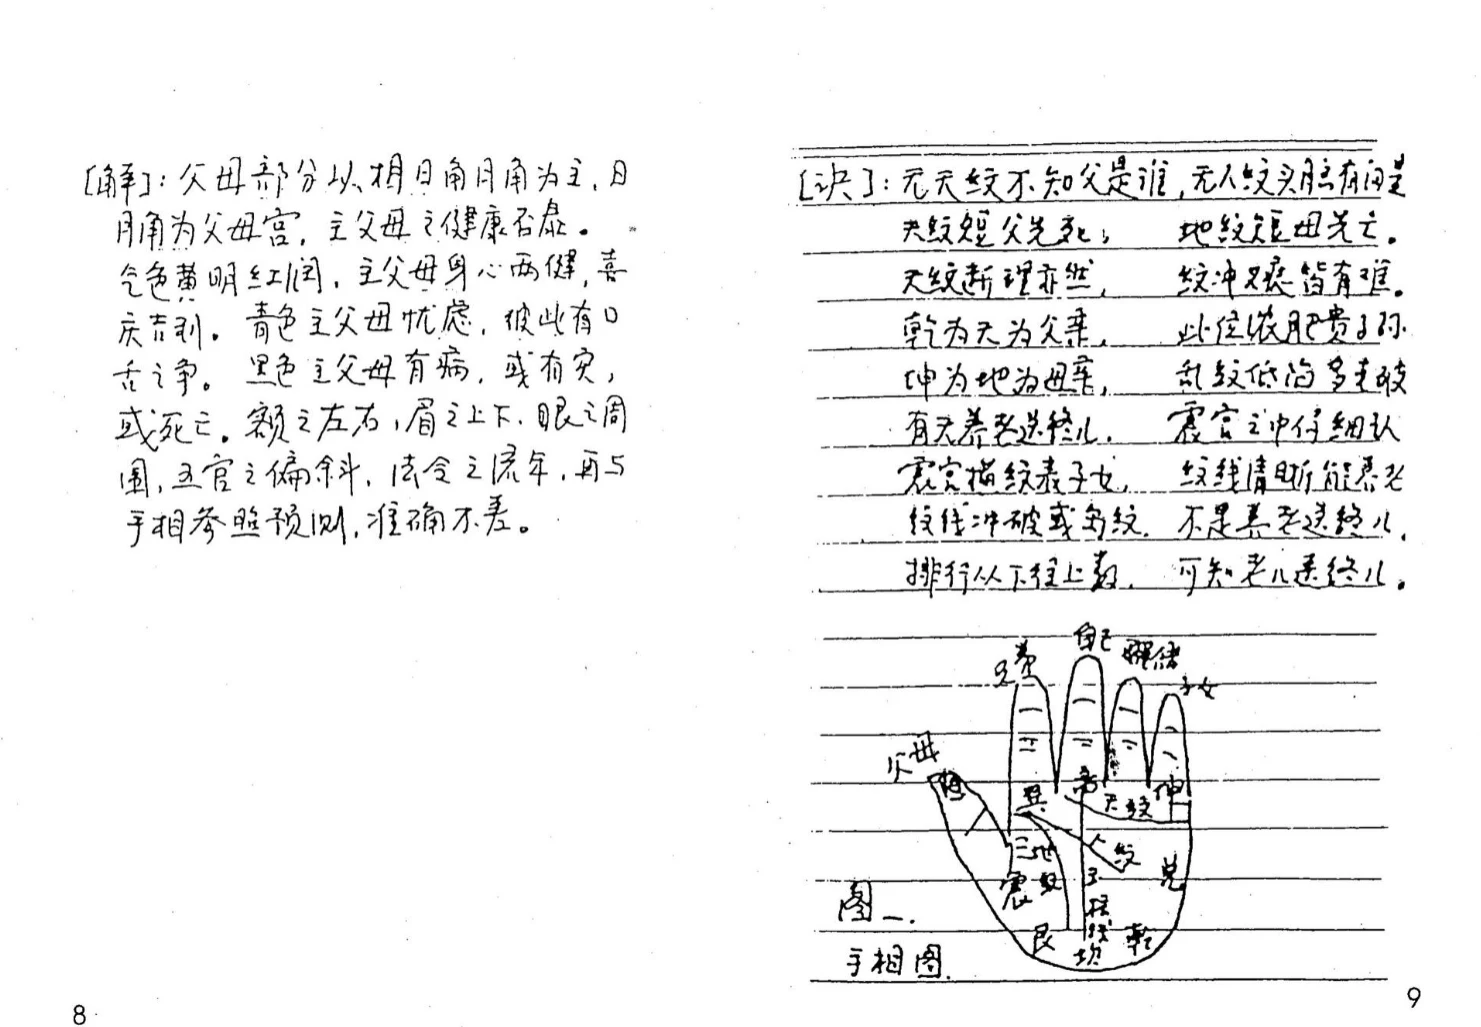 [解]：父母部分以相日角月角为主，日
月角为父母宫，主父母之健康否泰。
气色黄明红润，主父母身心两健，喜
庆吉利。青色主父母忧虑，彼此有口
舌之争。黑色主父母有病，或有灾，
或死亡。额之左右，眉之上下，眼之周
围，五官之偏斜，法令之流年，再与
手相参照预测，准确不差。
8
[决]：无天纹不知父是谁，无人纹头脑有问是
天纹短父先死； 地纹短母先亡。
天纹断理亦然， 纹冲又痕皆有难。
乾为天为父亲， 此位浓肥贵子孙
坤为地为母亲， 乱纹低陷多主破
有无养老送终儿， 震宫之中仔细认
震宫横纹表子女， 纹线清晰能养老
纹线冲破或岛纹， 不是养老送终儿，
排行从下往上数， 可知老几送终儿。
自己
兄弟
子女
父母
巽
天纹
坤
三地纹
人纹
震
兑
玉柱线
艮
坎
乾
图一.
手相图
9